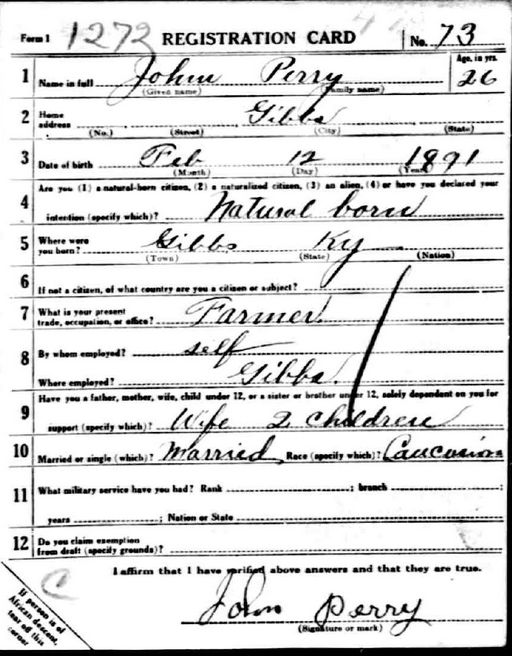 Form 1 1272 REGISTRATION CARD No. 73
1 Name in full John Perry Age, in yrs. 26
(Given name) (Family name)
2 Home address Gibbs
(No.) (Street) (City) (State)
3 Date of birth Feb 12 1891
(Month) (Day) (Year)
4 Are you (1) a natural-born citizen, (2) a naturalized citizen, (3) an alien, (4) or have you declared your
intention (specify which)? Natural born
5 Where were you born? Gibbs Ky
(Town) (State) (Nation)
6 If not a citizen, of what country are you a citizen or subject?
7 What is your present trade, occupation, or office? Farmer
8 By whom employed? self
Where employed? Gibbs.
9 Have you a father, mother, wife, child under 12, or a sister or brother under 12, solely dependent on you for
support (specify which)? Wife 2 children
10 Married or single (which)? Married Race (specify which)? Caucasion
11 What military service have you had? Rank ; branch
years ; Nation or State
12 Do you claim exemption
from draft (specify grounds)?
I affirm that I have verified above answers and that they are true.
John Perry
(Signature or mark)
If person is of
African descent,
tear off this
corner
C